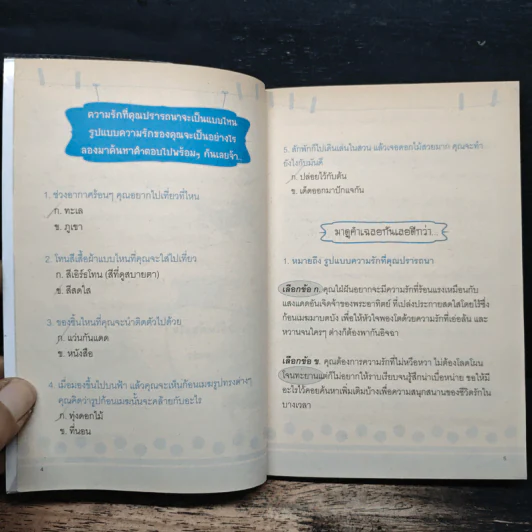 ความรักที่คุณปรารถนาจะเป็นแบบไหน
รูปแบบความรักของคุณจะเป็นอย่างไร
ลองมาค้นหาคำตอบไปพร้อมๆ กันเลยจ้า..
1. ช่วงอากาศร้อนๆ คุณอยากไปเที่ยวที่ไหน
ก. ทะเล
ข. ภูเขา
2. โทนสีเสื้อผ้าแบบไหนที่คุณจะใส่ไปเที่ยว
ก. สีเอิร์ธโทน (สีที่ดูสบายตา)
ข. สีสดใส
3. ของชิ้นไหนที่คุณจะนำติดตัวไปด้วย
ก. แว่นกันแดด
ข. หนังสือ
4. เมื่อมองขึ้นไปบนฟ้า แล้วคุณจะเห็นก้อนเมฆรูปทรงต่างๆ
คุณคิดว่ารูปก้อนเมฆนั้นจะคล้ายกับอะไร
ก. ทุ่งดอกไม้
ข. ที่นอน
4
5. สักพักก็ไปเดินเล่นในสวน แล้วเจอดอกไม้สวยมาก คุณจะทำ
ยังไงกับมันดี
ก. ปล่อยไว้กับต้น
ข. เด็ดออกมาปักแจกัน
มาดูคำเฉลยกันเลยดีกว่า...
1. หมายถึง รูปแบบความรักที่คุณปรารถนา
เลือกข้อ ก. คุณใฝ่ฝันอยากจะมีความรักที่ร้อนแรงเหมือนกับ
แสงแดดอันเจิดจ้าของพระอาทิตย์ ที่เปล่งประกายสดใสโดยไร้ซึ่ง
ก้อนเมฆมาบดบัง เพื่อให้หัวใจพองโตด้วยความรักที่เย่อล้น และ
หวานจนใครๆ ต่างก็ต้องพากันอิจฉา
เลือกข้อ ข. คุณต้องการความรักที่ไม่หวือหวา ไม่ต้องโลดโผน
โจนทะยานแต่ก็ไม่อยากให้ราบเรียบจนรู้สึกน่าเบื่อหน่าย ขอให้มี
อะไรไว้คอยค้นหาเพิ่มเติมบ้างเพื่อความสนุกสนานของชีวิตรักใน
บางเวลา
5